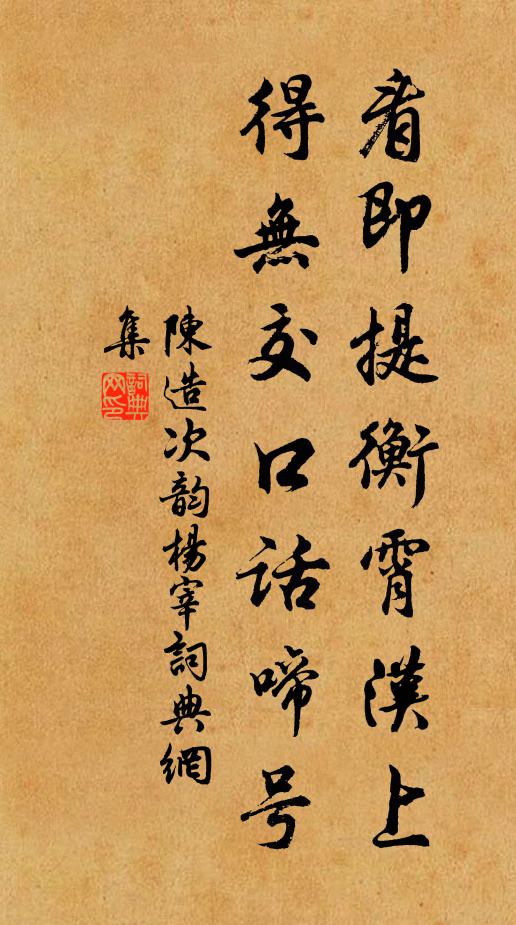 看即提衡霄漢上
得無交口話啼号
陳造次韵楊宰詞典網
集
詞典网印